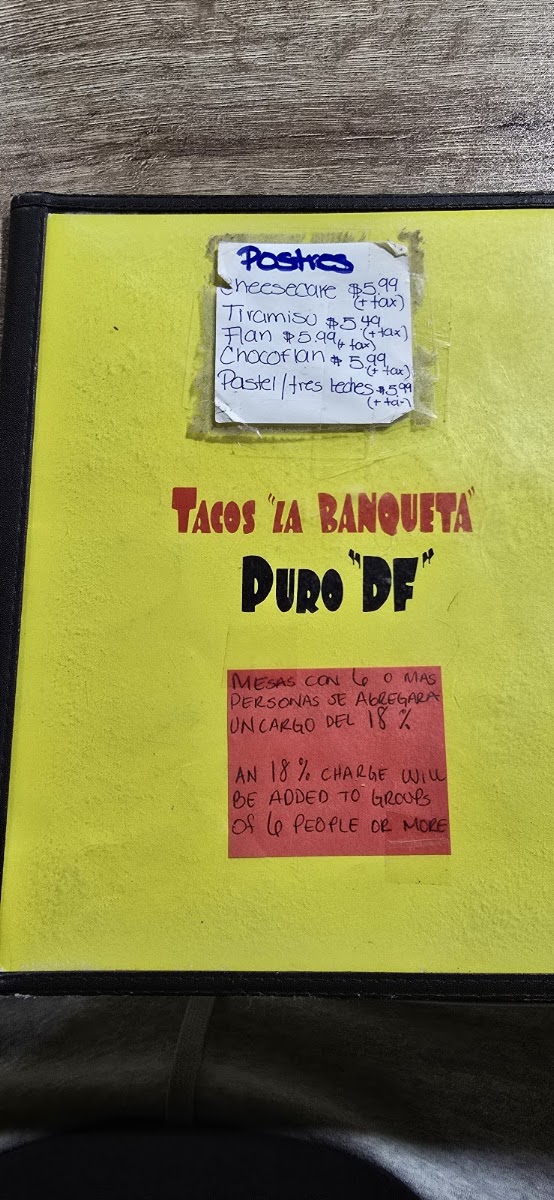 Postres
Cheesecake $5.99
(+ tax)
Tiramisu $5.49
(+ tax)
Flan $5.99
(+ tax)
Chocoflan $5.99
(+ tax)
Pastel/tres leches $5.99
(+ tax)
TACOS "LA BANQUETA"
PURO "DF"
MESAS CON 6 O MAS
PERSONAS SE AGREGARA
UN CARGO DEL 18%
AN 18% CHARGE WILL
BE ADDED TO GROUPS
OF 6 PEOPLE OR MORE